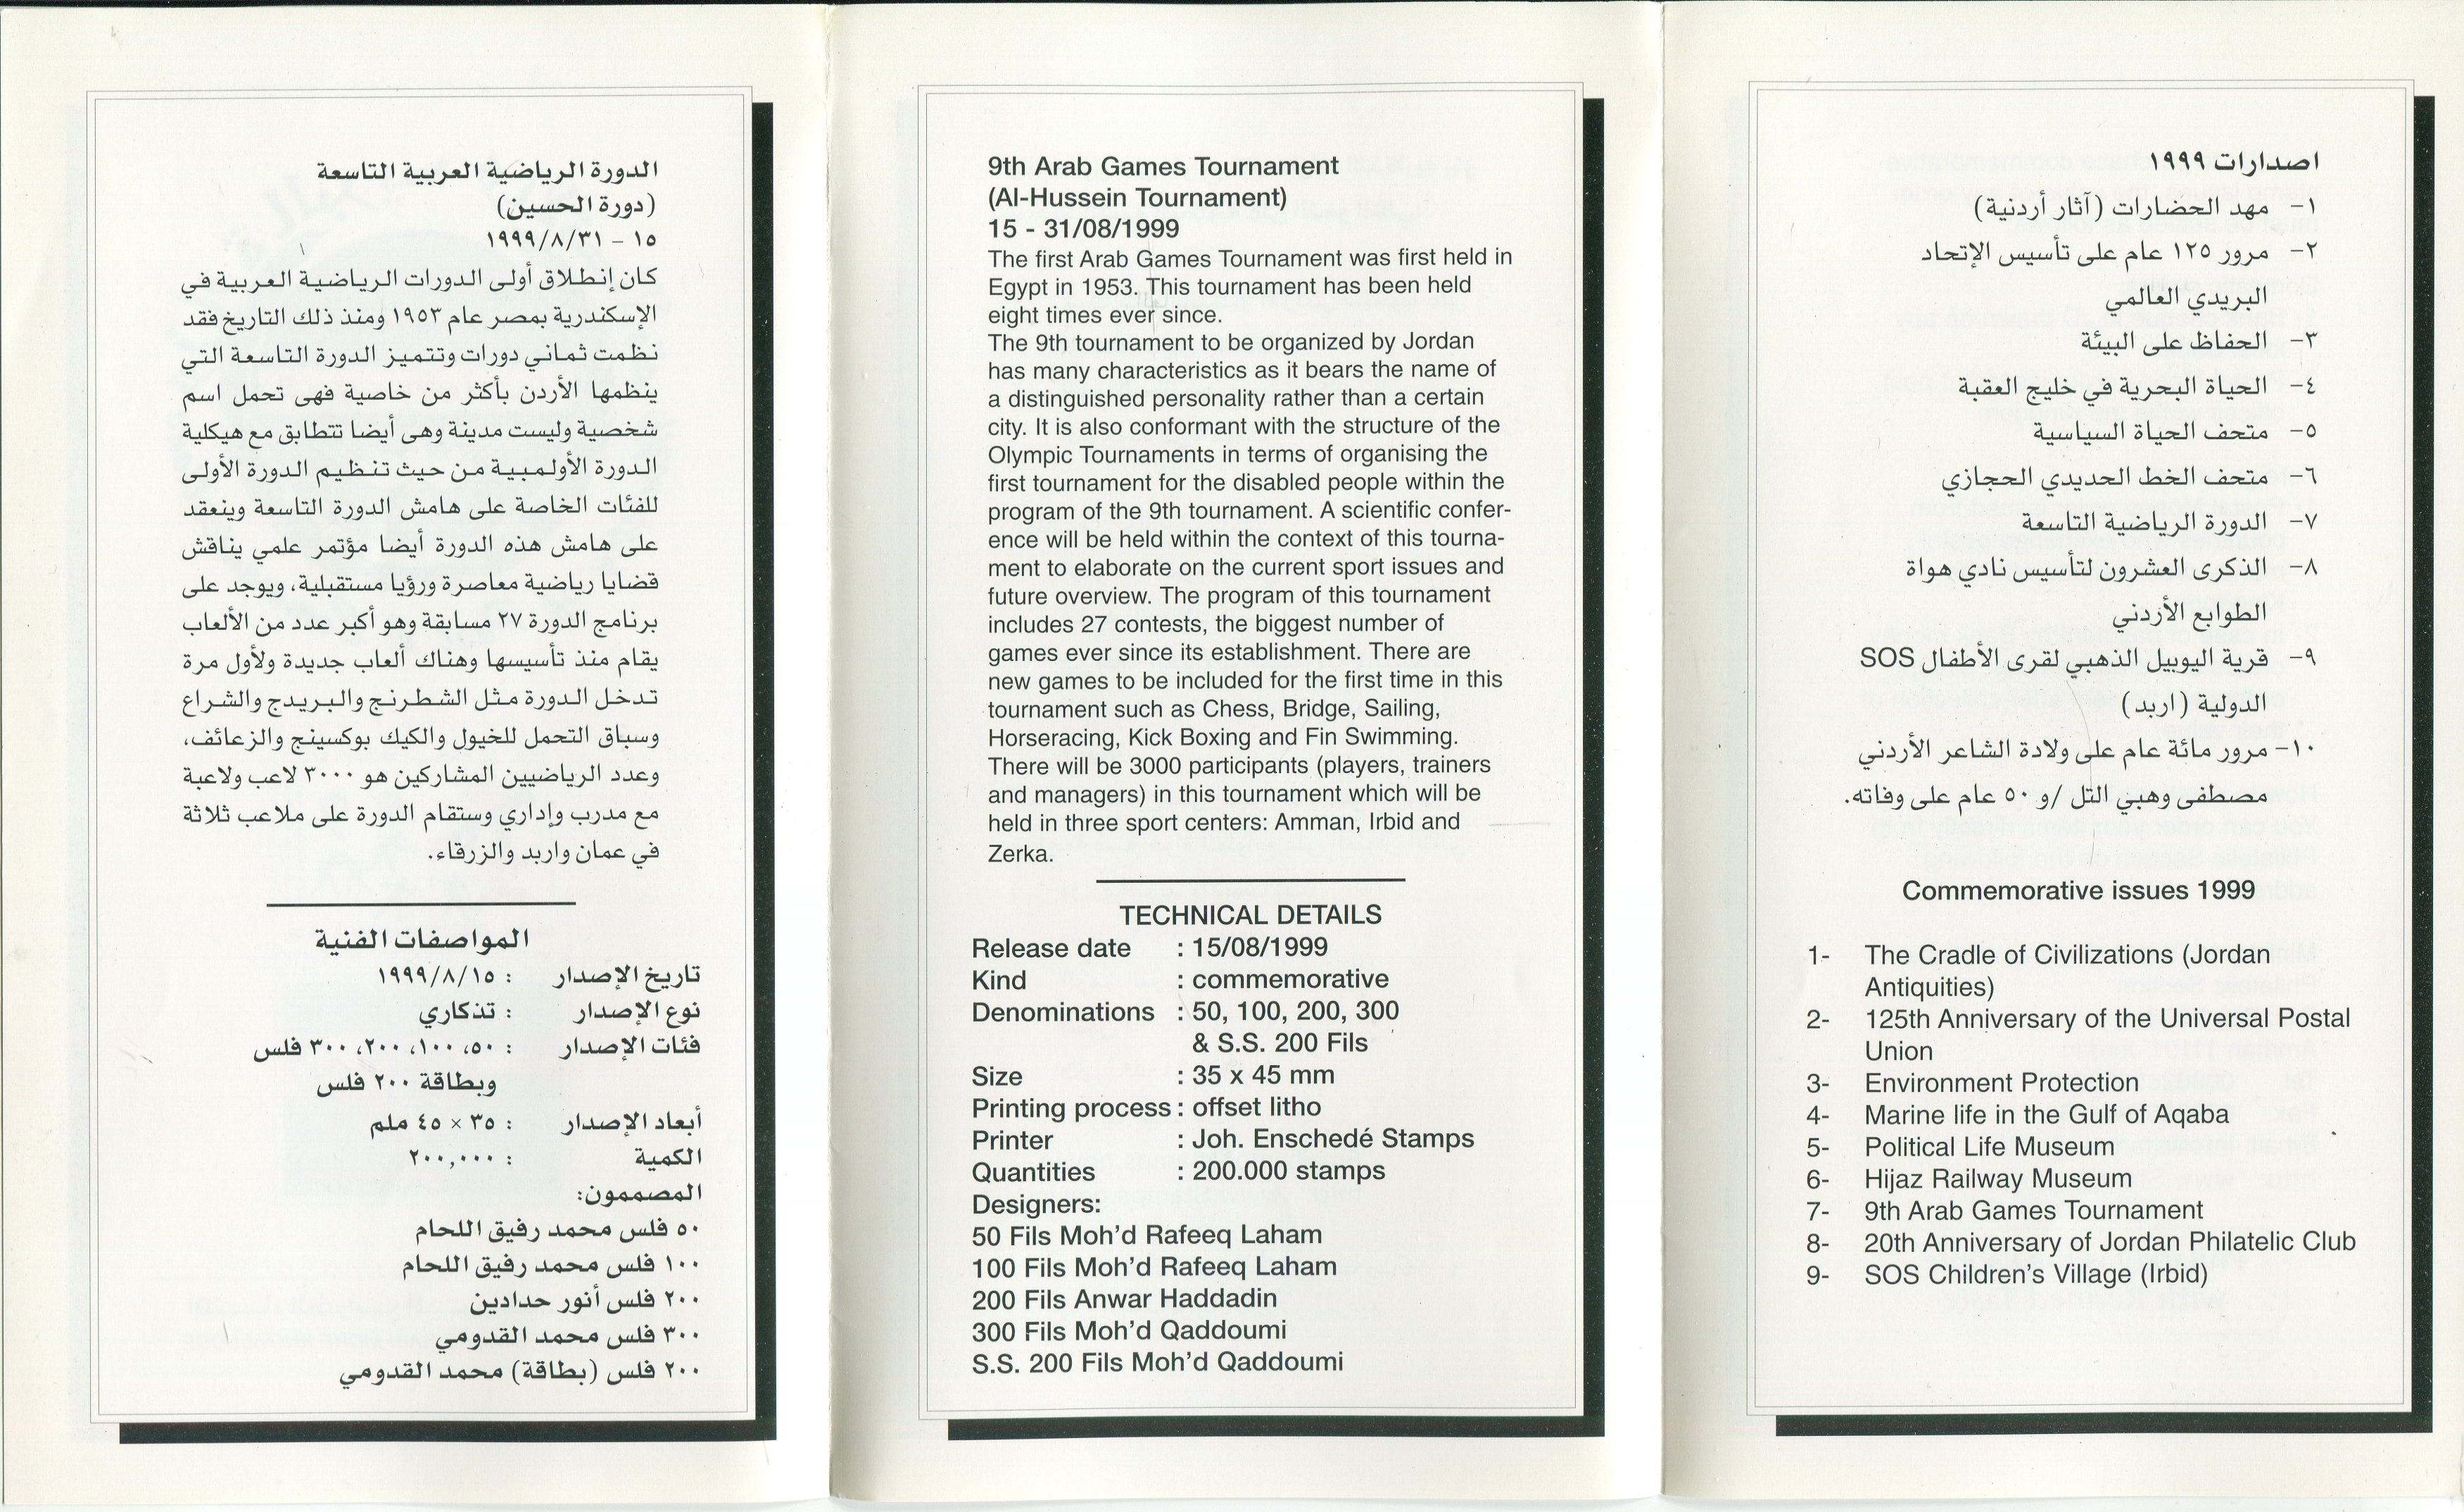 الدورة الرياضية العربية التاسعة
(دورة الحسين)
١٥ - ١٩٩٩/٨/٣١
كان إنطلاق أولى الدورات الرياضية العربية في
الإسكندرية بمصر عام ١٩٥٣ ومنذ ذلك التاريخ فقد
نظمت ثماني دورات وتتميز الدورة التاسعة التي
ينظمها الأردن بأكثر من خاصية فهى تحمل اسم
شخصية وليست مدينة وهى أيضا تتطابق مع هيكلية
الدورة الأولمبية من حيث تنظيم الدورة الأولى
للفئات الخاصة على هامش الدورة التاسعة وينعقد
على هامش هذه الدورة أيضا مؤتمر علمي يناقش
قضايا رياضية معاصرة ورؤيا مستقبلية، ويوجد على
برنامج الدورة ٢٧ مسابقة وهو أكبر عدد من الألعاب
يقام منذ تأسيسها وهناك ألعاب جديدة ولأول مرة
تدخل الدورة مثل الشطرنج والبريدج والشراع
وسباق التحمل للخيول والكيك بوكسينج والزعائف،
وعدد الرياضيين المشاركين هو ٣٠٠٠ لاعب ولاعبة
مع مدرب وإداري وستقام الدورة على ملاعب ثلاثة
في عمان واربد والزرقاء.
المواصفات الفنية
تاريخ الإصدار : ١٩٩٩/٨/١٥
نوع الإصدار : تذكاري
فئات الإصدار : ٥٠، ١٠٠، ٢٠٠، ٣٠٠ فلس
وبطاقة ٢٠٠ فلس
أبعاد الإصدار : ٣٥ × ٤٥ ملم
الكمية : ٢٠٠,٠٠٠
المصممون:
٥٠ فلس محمد رفيق اللحام
١٠٠ فلس محمد رفيق اللحام
٢٠٠ فلس أنور حدادين
٣٠٠ فلس محمد القدومي
٢٠٠ فلس (بطاقة) محمد القدومي
9th Arab Games Tournament
(Al-Hussein Tournament)
15 - 31/08/1999
The first Arab Games Tournament was first held in
Egypt in 1953. This tournament has been held
eight times ever since.
The 9th tournament to be organized by Jordan
has many characteristics as it bears the name of
a distinguished personality rather than a certain
city. It is also conformant with the structure of the
Olympic Tournaments in terms of organising the
first tournament for the disabled people within the
program of the 9th tournament. A scientific confer-
ence will be held within the context of this tourna-
ment to elaborate on the current sport issues and
future overview. The program of this tournament
includes 27 contests, the biggest number of
games ever since its establishment. There are
new games to be included for the first time in this
tournament such as Chess, Bridge, Sailing,
Horseracing, Kick Boxing and Fin Swimming.
There will be 3000 participants (players, trainers
and managers) in this tournament which will be
held in three sport centers: Amman, Irbid and
Zerka.
TECHNICAL DETAILS
Release date : 15/08/1999
Kind : commemorative
Denominations : 50, 100, 200, 300
& S.S. 200 Fils
Size : 35 x 45 mm
Printing process : offset litho
Printer : Joh. Enschedé Stamps
Quantities : 200.000 stamps
Designers:
50 Fils Moh'd Rafeeq Laham
100 Fils Moh'd Rafeeq Laham
200 Fils Anwar Haddadin
300 Fils Moh'd Qaddoumi
S.S. 200 Fils Moh'd Qaddoumi
اصدارات ١٩٩٩
١- مهد الحضارات (آثار أردنية)
٢- مرور ١٢٥ عام على تأسيس الإتحاد
البريدي العالمي
٣- الحفاظ على البيئة
٤- الحياة البحرية في خليج العقبة
٥- متحف الحياة السياسية
٦- متحف الخط الحديدي الحجازي
٧- الدورة الرياضية التاسعة
٨- الذكرى العشرون لتأسيس نادي هواة
الطوابع الأردني
٩- قرية اليوبيل الذهبي لقرى الأطفال SOS
الدولية (اربد)
١٠- مرور مائة عام على ولادة الشاعر الأردني
مصطفى وهبي التل /و ٥٠ عام على وفاته.
Commemorative issues 1999
1- The Cradle of Civilizations (Jordan
Antiquities)
2- 125th Anniversary of the Universal Postal
Union
3- Environment Protection
4- Marine life in the Gulf of Aqaba
5- Political Life Museum
6- Hijaz Railway Museum
7- 9th Arab Games Tournament
8- 20th Anniversary of Jordan Philatelic Club
9- SOS Children's Village (Irbid)